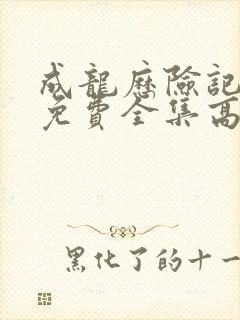 成龍歷險記
免費全集高
黑化了的十一